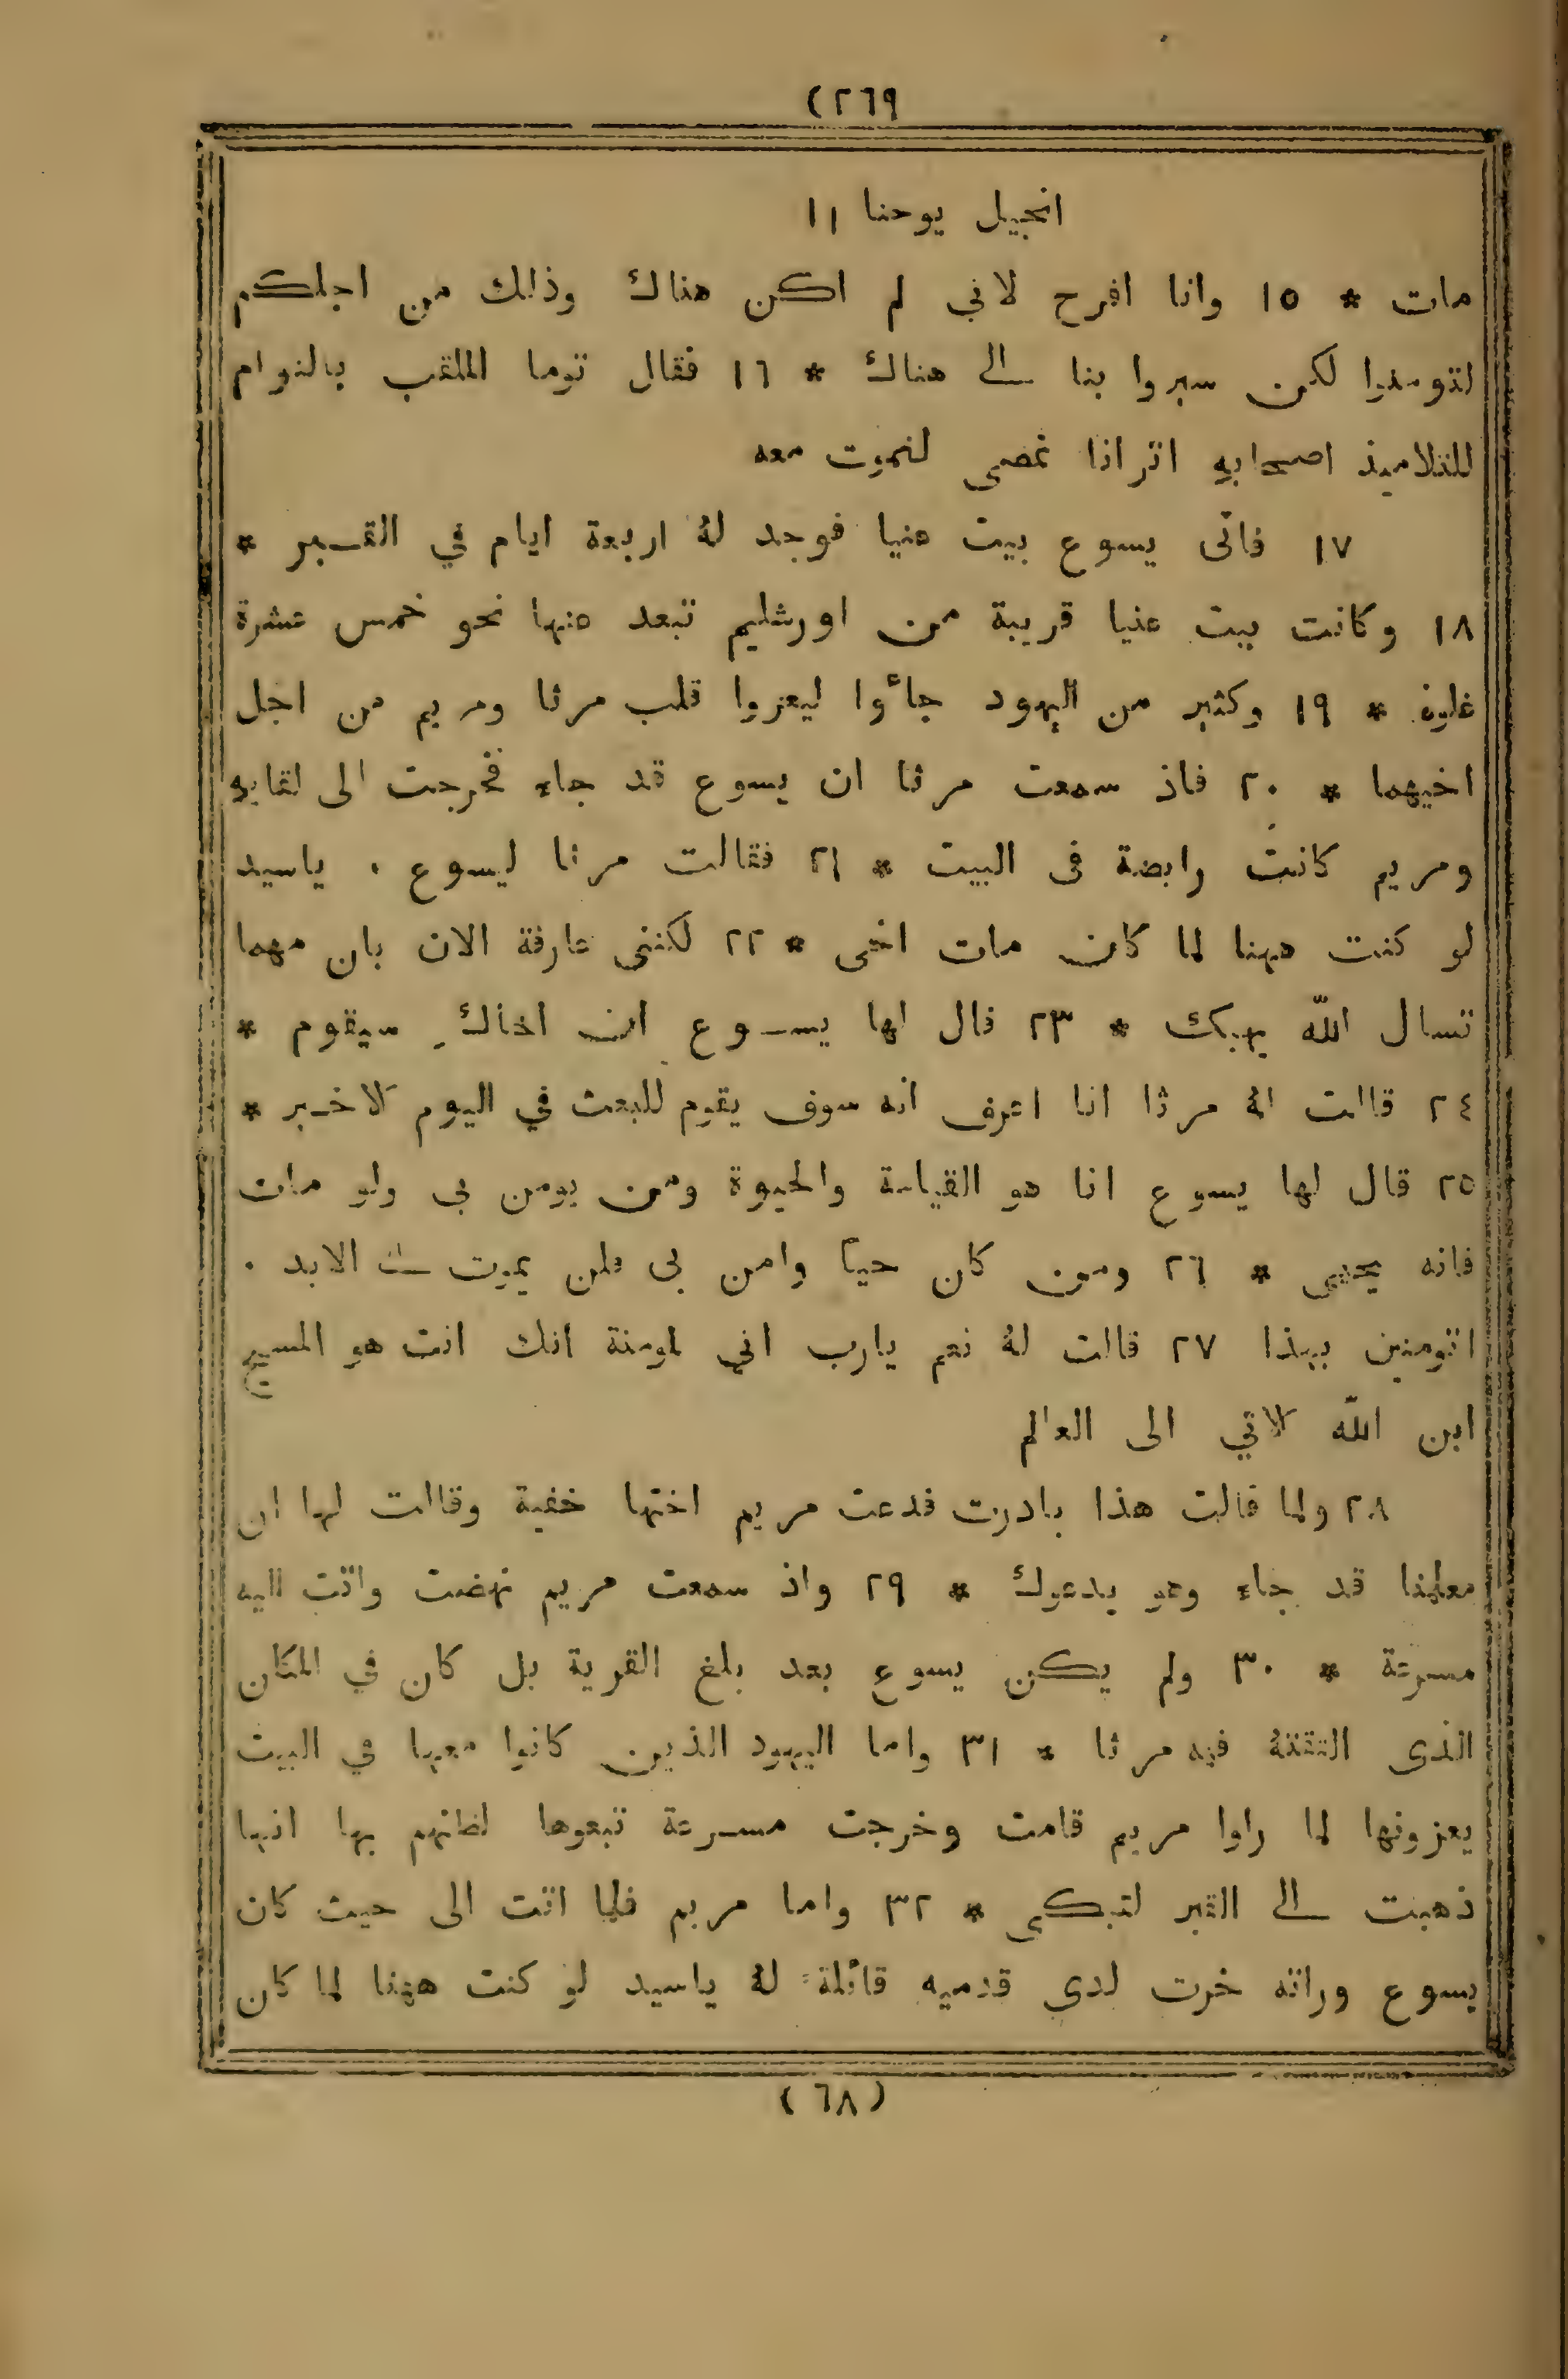 (٢٦٩
انجيل يوحنا ١١
مات * ١٥ وانا افرح لاني لم اكن هناك وذالك من اجلكم
لتومنوا لكن سيروا بنا الى هناك * ١٦ فقال توما الملقب بالتوام
للتلاميذ اصحابه اترانا نمضى لنموت معه
١٧ فاتى يسوع بيت عنيا فوجد لهُ اربعة ايام في القبر *
١٨ وكانت بيت عنيا قريبة من اورشليم تبعد عنها نحو خمس عشرة
غلوة * ١٩ وكثير من اليهود جاءوا ليعزوا قلب مرثا ومريم من اجل
اخيهما * ٢٠ فاذ سمعت مرثا ان يسوع قد جاء فخرجت الى لقايه
ومريم كانت رابضة فى البيت * ٢١ فقالت مرثا ليسوع . ياسيد
لو كنت ههنا لما كان مات اخى * ٢٢ لكننى عارفة الان بان مهما
تسال اللّه يهبك * ٢٣ قال لها يسوع ان اخاكِ سيقوم *
٢٤ قالت لهُ مرثا انا اعرف انه سوف يقوم للبعث في اليوم الاخير *
٢٥ قال لها يسوع انا هو القيامة والحيوة ومن يومن بى ولو مات
فانه يحيى * ٢٦ ومن كان حيًا وامن بى فلن يموت الى الابد .
اتومنين بهذا ٢٧ قالت لهُ نعم يارب اني لمومنة انك انت هو المسيح
ابن اللّه الاتي الى العالم
٢٨ ولما قالت هذا بادرت فدعت مريم اختها خفية وقالت لها ان
معلمنا قد جاء وهو يدعوك * ٢٩ واذ سمعت مريم نهضت واتت اليه
مسرعة * ٣٠ ولم يكن يسوع بعد بلغ القرية بل كان في المكان
الذى التقتهُ فيه مرثا * ٣١ واما اليهود الذين كانوا معها في البيت
يعزونها لما راوا مريم قامت وخرجت مسرعة تبعوها لظنهم بها انها
ذهبت الى القبر لتبكى * ٣٢ واما مريم فلما اتت الى حيث كان
يسوع وراته خرت لدى قدميه قائلة لهُ ياسيد لو كنت ههنا لما كان
(٦٨)